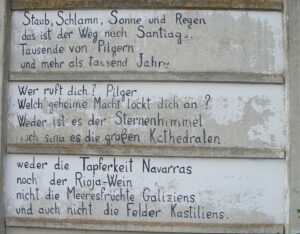 Staub, Schlamn, Sonne und Regen
das ist der Weg nach Santiago.
Tausende von Pilgern
und mehr als tausend Jahre
Wer ruft dich? Pilger
Welch geheime Macht lockt dich an?
Weder ist es der Sternenhimmel
noch sind es die großen Kathedralen
weder die Tapferkeit Navarras
noch der Rioja-Wein
nicht die Meeresfrüchte Galiziens
und auch nicht die Felder Kastiliens.